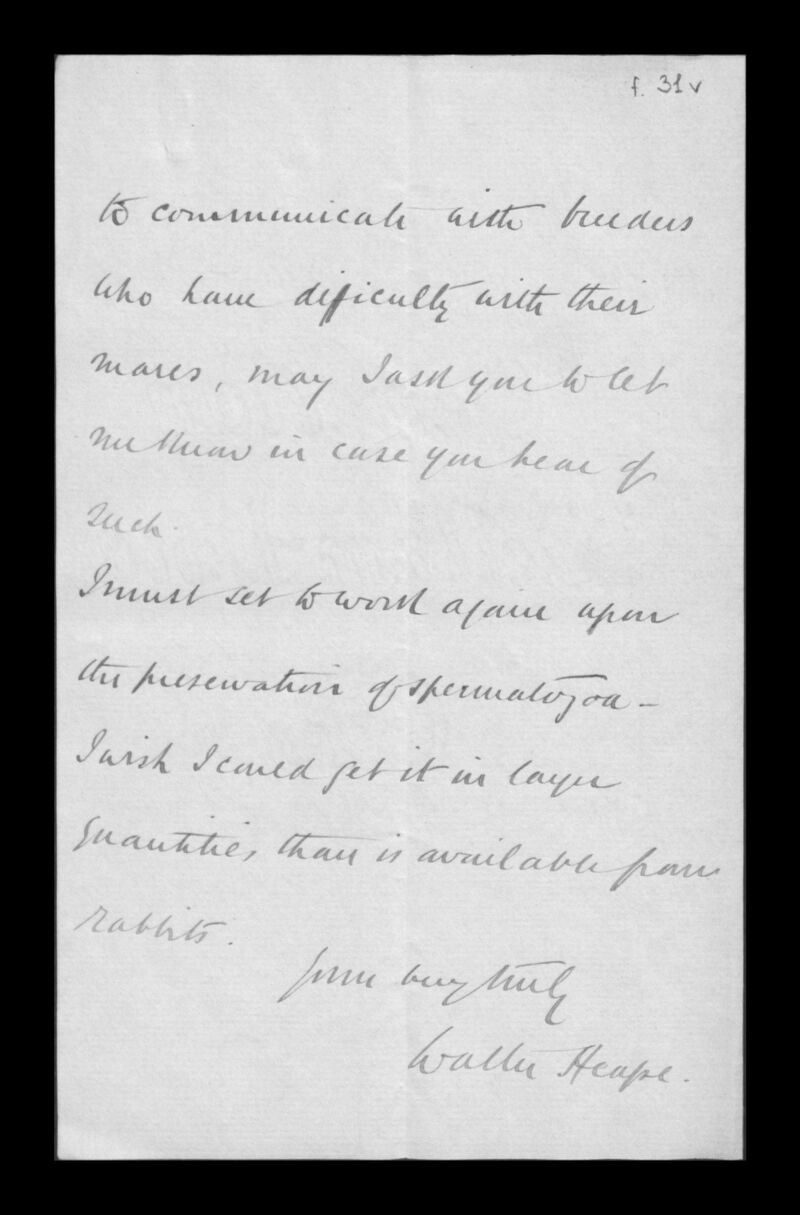 f. 31v
to communicate with breeders
who have dificulty with their
mares, may I ask you to let
me know in case you hear of
such.
I must set to work again upon
the preservation of spermatozoa –
I wish I could get it in larger
quantities than is available from
rabbits.
Yours very truly
Walter Heape.